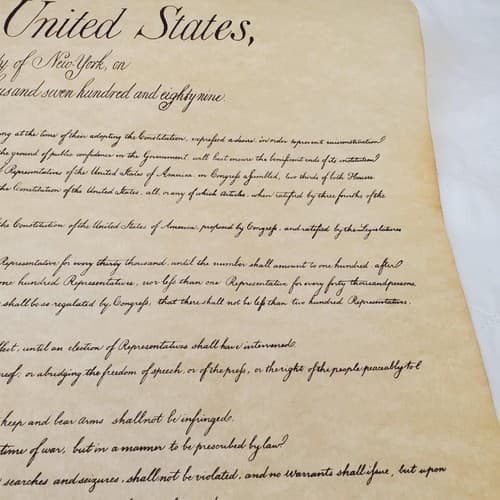 United States,
y of New-York, on
usand seven hundred and eighty nine.
ong at the time of their adopting the Constitution, expressed a desire, in order to prevent misconstruction
the ground of public confidence in the Government, will best insure the beneficent ends of its institution
Representatives of the United States of America, in Congress assembled, two thirds of both Houses
the Constitution of the United States, all, or any of which articles, when ratified by three fourths of the
the Constitution of the United States of America, proposed by Congress, and ratified by the Legislatures
Representative for every thirty thousand, until the number shall amount to one hundred, after
one hundred Representatives, nor less than one Representative for every forty thousand persons,
shall be so regulated by Congress, that there shall not be less than two hundred Representatives,
ffect, until an election of Representatives shall have intervened.
reof; or abridging the freedom of speech, or of the press, or the right of the people peaceably to
keep and bear arms shall not be infringed.
time of war, but in a manner to be prescribed by law.
searches and seizures, shall not be violated, and no warrants shall issue, but upon